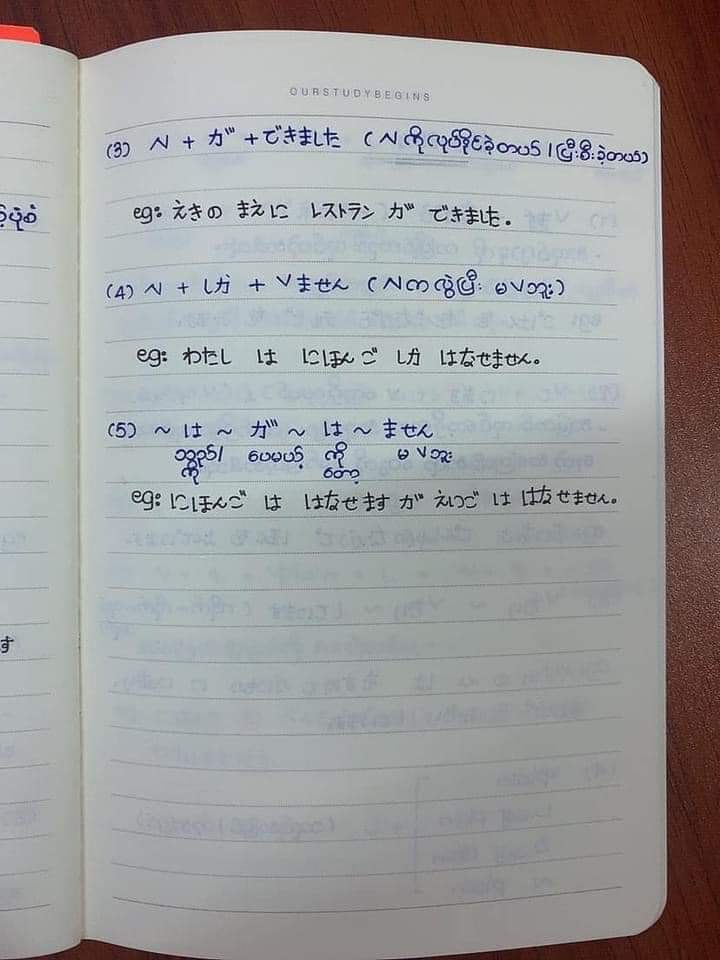 OURSTUDYBEGINS
(3) N + が + できました ( N ကိုလုပ်နိုင်ခဲ့တယ် / ပြီးစီးခဲ့တယ်)
eg: えきの まえに レストラン が できました.
(4) N + しか + Vません ( N ကလွဲပြီး မ V ဘူး )
eg: わたし は にほんご しか はなせません。
(5) ~ は ~ が ~ は ~ ません
သည်/ ပေမယ့် ကို မ V ဘူး
ကို တော့
eg: にほんご は はなせます が えいご は はなせません。
す